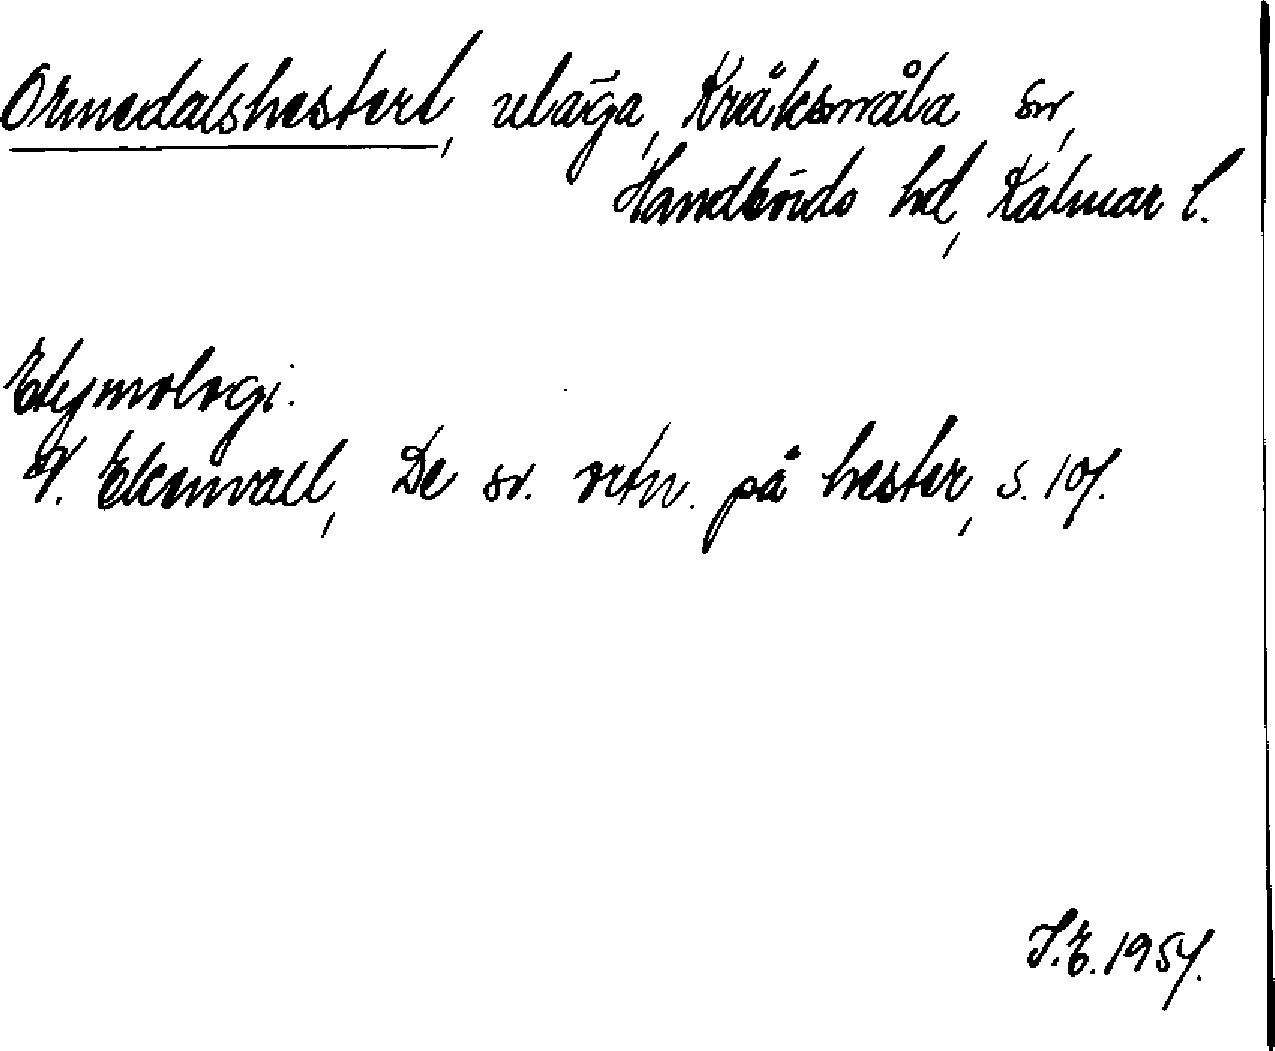 Ormedalshesterl, uläga, Kråksmåla sn,
Handbörds hd, Kalmar l.
Etymologi.
V. Ekenvall, De sv. ortn. på hester, s. 107.
I.E. 1957.